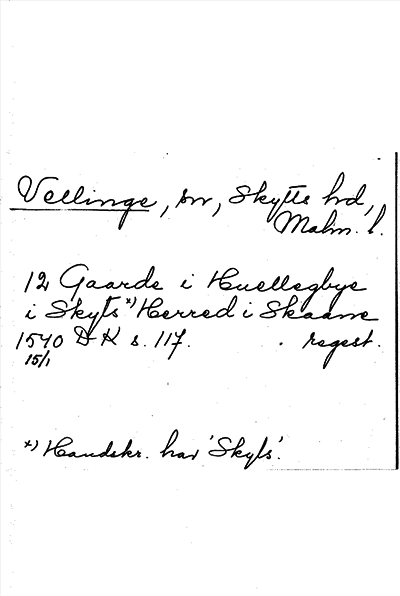 Vellinge, sn, Skytts hd,
Malm. l.
12 Gaarde i Huellegbye
i Skyts *) Herred i Skaane
1540 DK s. 117. . regest.
15/1
*) Handskr. har 'Skyls'.